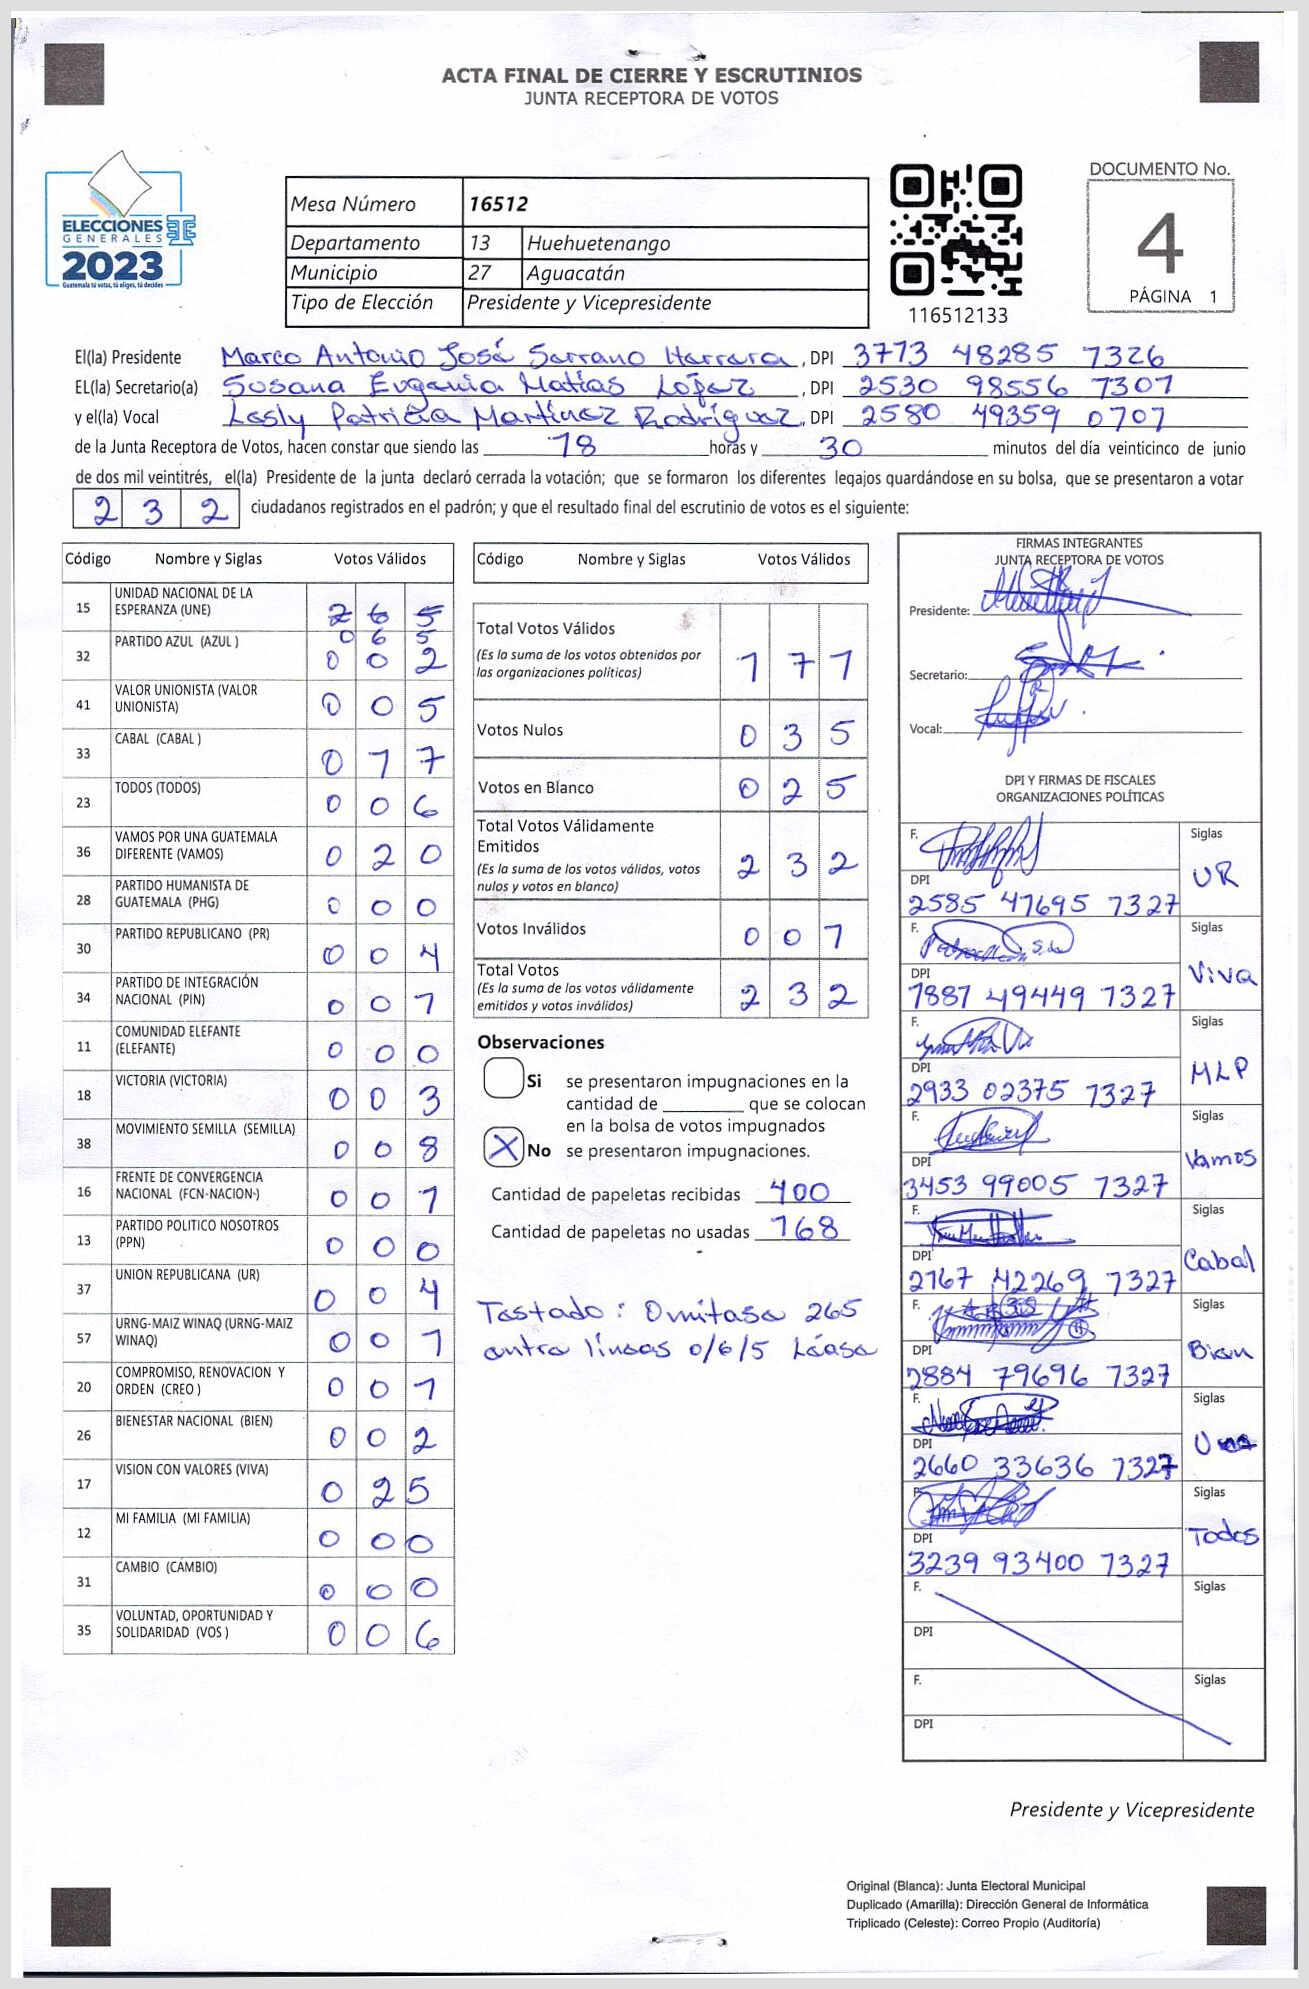 ACTA FINAL DE CIERRE Y ESCRUTINIOS
JUNTA RECEPTORA DE VOTOS
ELECCIONES
GENERALES
2023
Guatemala tú votas, tú eliges, tú decides
Mesa Número 16512
Departamento 13 Huehuetenango
Municipio 27 Aguacatán
Tipo de Elección Presidente y Vicepresidente
116512133
DOCUMENTO No.
4
PÁGINA 1
El(la) Presidente Marco Antonio José Serrano Herrera, DPI 3773 48285 7326
EL(la) Secretario(a) Susana Eugenia Matías López, DPI 2530 98556 1307
y el(la) Vocal Lesly Patricia Martínez Rodríguez, DPI 2580 49359 0101
de la Junta Receptora de Votos, hacen constar que siendo las 18 horas y 30 minutos del día veinticinco de junio
de dos mil veintitrés, el(la) Presidente de la junta declaró cerrada la votación; que se formaron los diferentes legajos guardándose en su bolsa, que se presentaron a votar
2 3 2 ciudadanos registrados en el padrón; y que el resultado final del escrutinio de votos es el siguiente:
Código Nombre y Siglas Votos Válidos
15 UNIDAD NACIONAL DE LA ESPERANZA (UNE) 2 6 5
0 6 5
32 PARTIDO AZUL (AZUL ) 0 0 2
41 VALOR UNIONISTA (VALOR UNIONISTA) 0 0 5
33 CABAL (CABAL ) 0 1 7
23 TODOS (TODOS) 0 0 6
36 VAMOS POR UNA GUATEMALA DIFERENTE (VAMOS) 0 2 0
28 PARTIDO HUMANISTA DE GUATEMALA (PHG) 0 0 0
30 PARTIDO REPUBLICANO (PR) 0 0 4
34 PARTIDO DE INTEGRACIÓN NACIONAL (PIN) 0 0 1
11 COMUNIDAD ELEFANTE (ELEFANTE) 0 0 0
18 VICTORIA (VICTORIA) 0 0 3
38 MOVIMIENTO SEMILLA (SEMILLA) 0 0 8
16 FRENTE DE CONVERGENCIA NACIONAL (FCN-NACION-) 0 0 1
13 PARTIDO POLITICO NOSOTROS (PPN) 0 0 0
37 UNION REPUBLICANA (UR) 0 0 4
57 URNG-MAIZ WINAQ (URNG-MAIZ WINAQ) 0 0 1
20 COMPROMISO, RENOVACION Y ORDEN (CREO ) 0 0 1
26 BIENESTAR NACIONAL (BIEN) 0 0 2
17 VISION CON VALORES (VIVA) 0 2 5
12 MI FAMILIA (MI FAMILIA) 0 0 0
31 CAMBIO (CAMBIO) 0 0 0
35 VOLUNTAD, OPORTUNIDAD Y SOLIDARIDAD (VOS ) 0 0 6
Código Nombre y Siglas Votos Válidos
Total Votos Válidos
(Es la suma de los votos obtenidos por
las organizaciones políticas) 1 7 1
Votos Nulos 0 3 5
Votos en Blanco 0 2 5
Total Votos Válidamente
Emitidos
(Es la suma de los votos válidos, votos
nulos y votos en blanco) 2 3 2
Votos Inválidos 0 0 1
Total Votos
(Es la suma de los votos válidamente
emitidos y votos inválidos) 2 3 2
Observaciones
Si se presentaron impugnaciones en la
cantidad de ________ que se colocan
en la bolsa de votos impugnados
X No se presentaron impugnaciones.
Cantidad de papeletas recibidas 400
Cantidad de papeletas no usadas 168
Testado: Omitase 265
entre líneas 0/6/5 Léase
FIRMAS INTEGRANTES
JUNTA RECEPTORA DE VOTOS
Presidente:
Secretario:
Vocal:
DPI Y FIRMAS DE FISCALES
ORGANIZACIONES POLÍTICAS
F. Siglas
DPI UR
2585 41695 1327
F. Siglas
DPI Viva
1887 49449 1327
F. Siglas
DPI MLP
2933 02375 1327
F. Siglas
DPI Vamos
3453 99005 1327
F. Siglas
DPI Cabal
2167 42269 1327
F. Siglas
DPI Bien
2884 79696 1327
F. Siglas
DPI Une
2660 33636 1327
F. Siglas
DPI Todos
3239 93400 1327
F. Siglas
DPI
F. Siglas
DPI
Presidente y Vicepresidente
Original (Blanca): Junta Electoral Municipal
Duplicado (Amarilla): Dirección General de Informática
Triplicado (Celeste): Correo Propio (Auditoría)